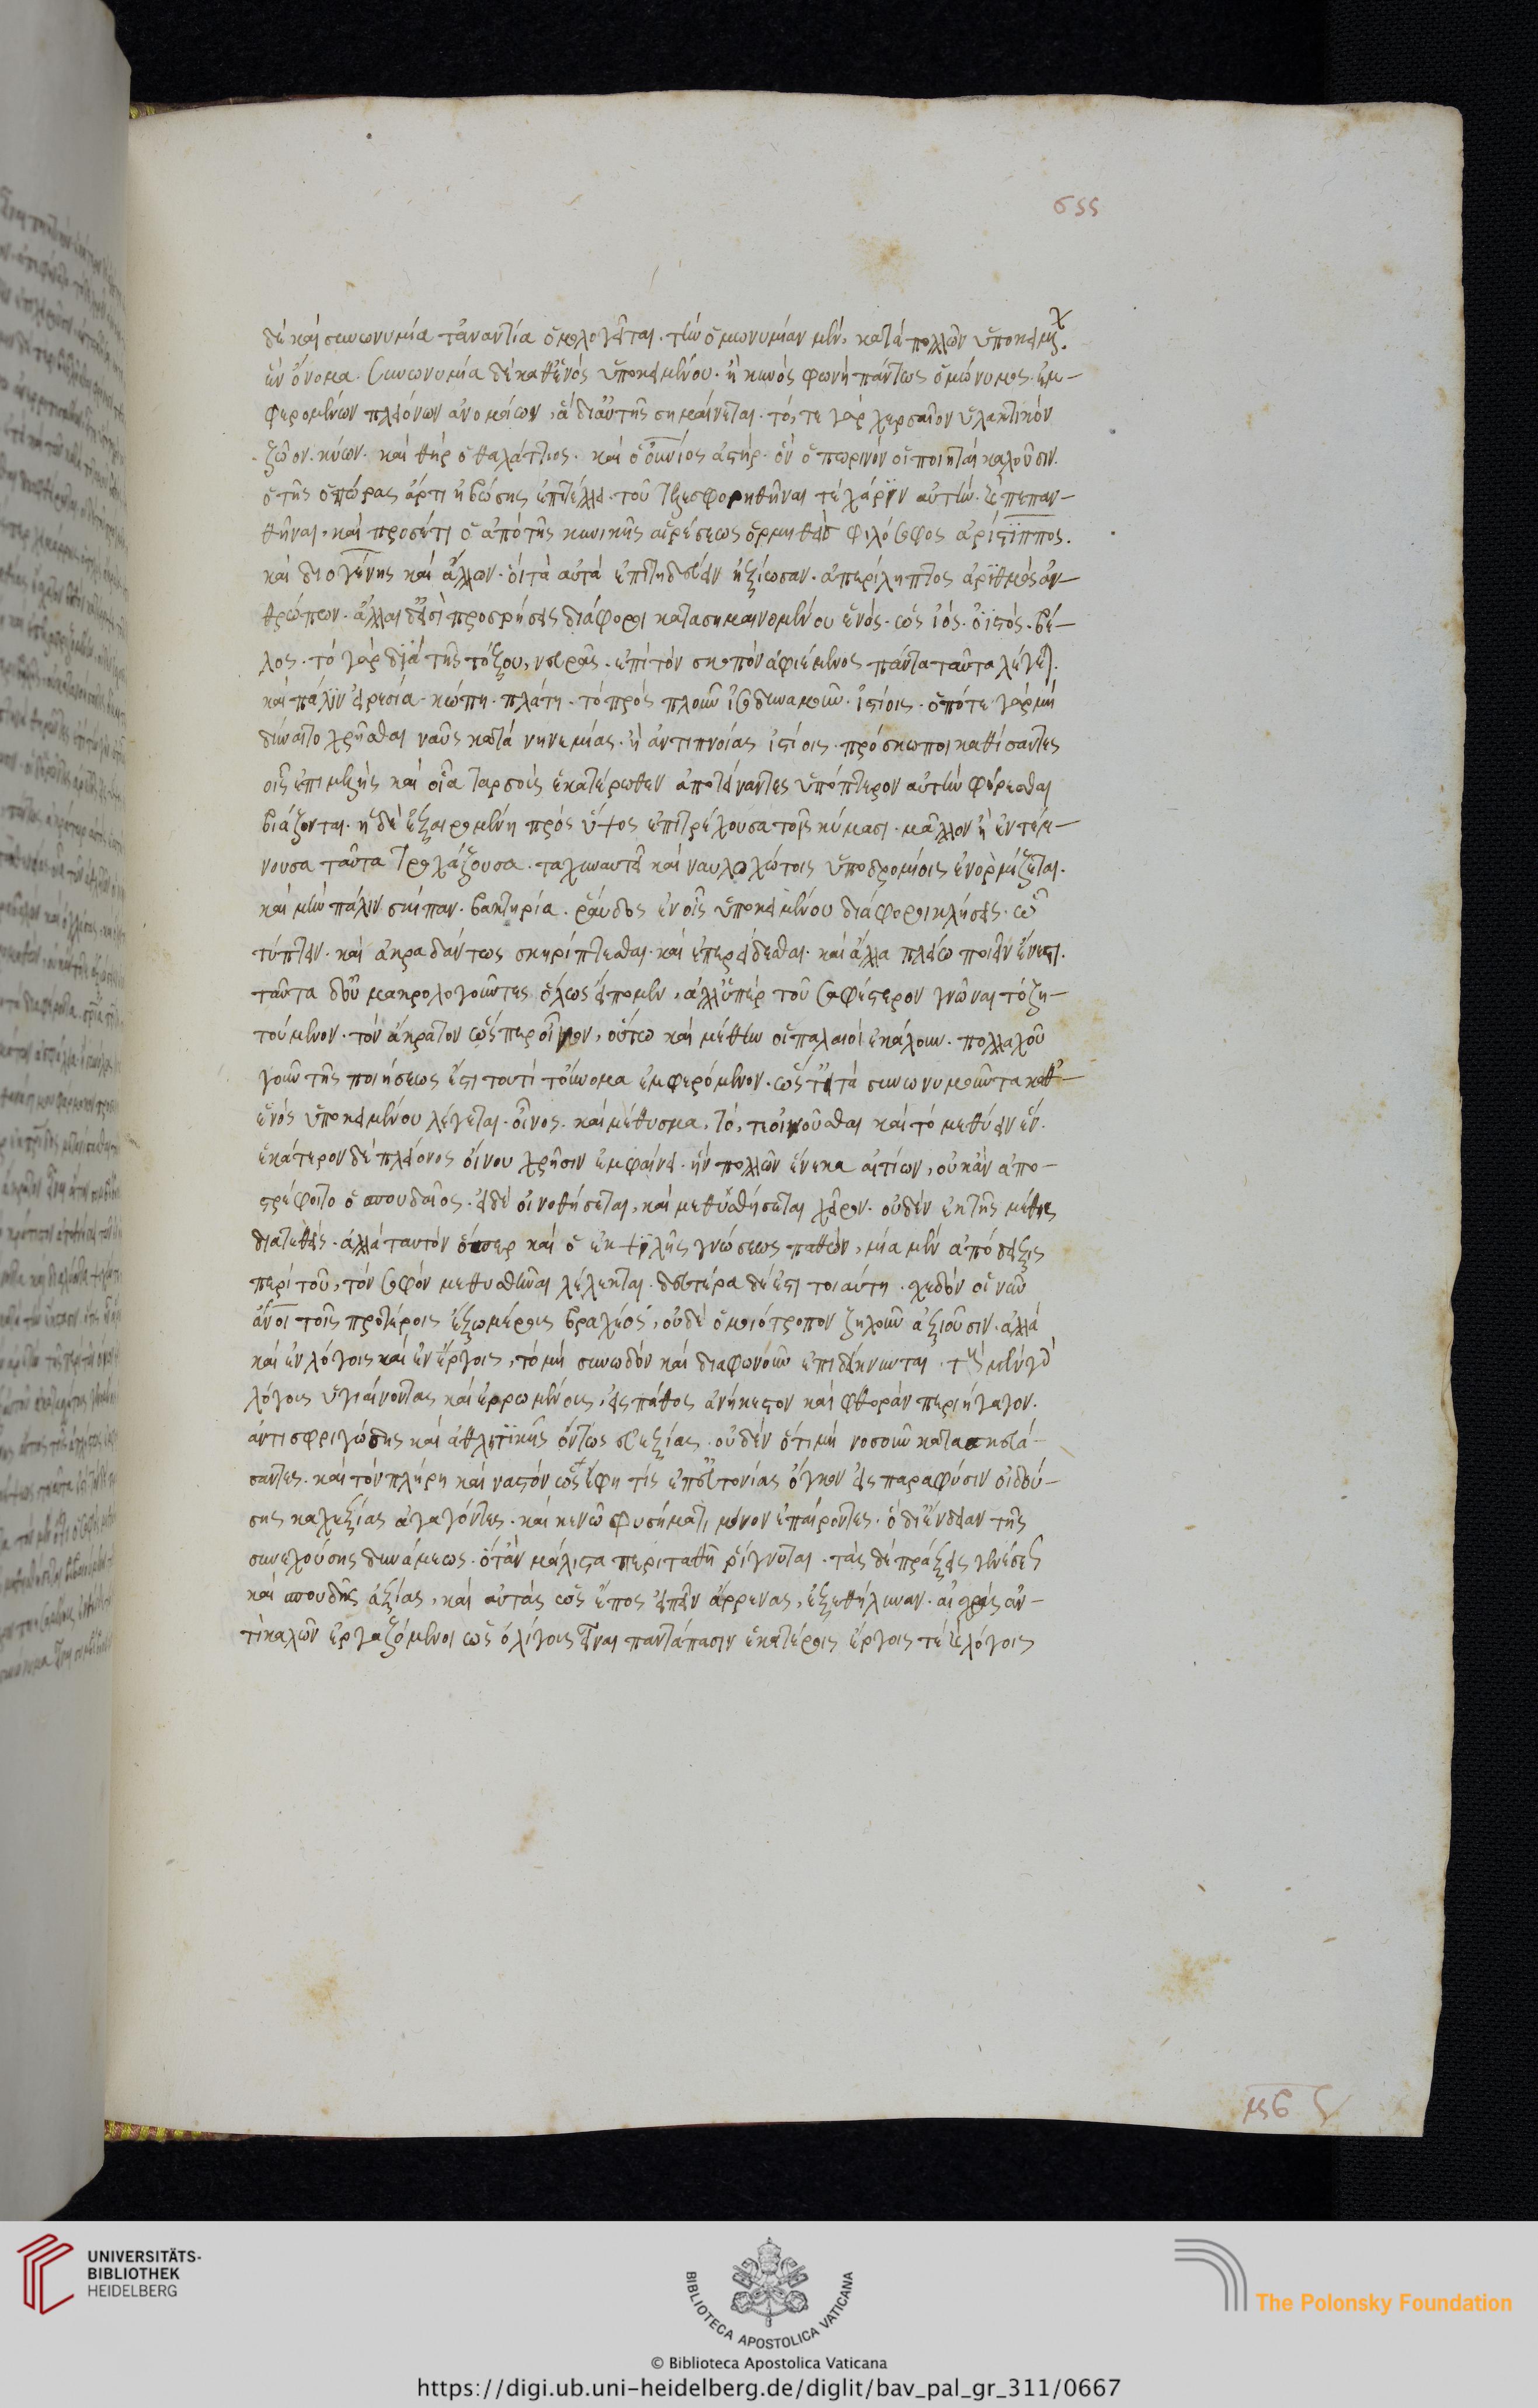 δὲ καὶ συνωνυμία τἀναντία ὁμολογεῖται. τὴν ὁμωνυμίαν μὲν, κατὰ πολλῶν ὑποκειμέ
ἓν ὄνομα. συνωνυμία δὲ καθ' ἑνὸς ὑποκειμένου. ἡ κυνὸς φωνὴ πάντως ὁμώνυμος. ἐμ-
φερομένων πλειόνων ἀνομοίων, ἃ δι' αὐτῆς σημαίνεται. τό, τε γὰρ χερσαῖον ὑλακτικὸν
ζῷον. κύων. καὶ θὴρ ὁ θαλάττιος. καὶ ὁ οὐνιος ἀστὴρ. ὃν ὀπωρινὸν οἱ ποιηταὶ καλοῦσιν.
ὁ τῆς ὀπώρας ἄρτι ἡβώσης ἐπιτέλλει. τοῦ τελεσφορηθῆναι τὲ χάριν αὐτὴν. καὶ πεπαν-
θῆναι, καὶ προσέτι ὁ ἀπὸ τῆς κυνικῆς αἱρέσεως ὁρμηθεὶς φιλόσοφος ἀρίστιππος.
καὶ διογένης καὶ ἄλλων. οἳ τὰ αὐτὰ ἐπιτηδεύειν ἠξίωσαν. ἀπερίληπτος ἀριθμὸς ἀν-
θρώπων. ἄλλαι δ' εἰσὶ προσρήσεις διάφοροι κατασημαινομένου ἑνός. ὡς ἰός. ὀϊστός. βέ-
λος. τὸ γὰρ διὰ τῆς τόξου, νευρᾶς. ἐπὶ τὸν σκοπὸν ἀφιέμενος πάντα ταῦτα λέγεται.
καὶ πάλιν εἰρεσία. κώπη. πλάτη. τὸ πρὸς πλοῦν ἰσοδυναμοῦν. ἱστίοις. ὁπότε γὰρ μὴ
δύναιτο χρῆσθαι ναῦς κατὰ νηνεμίας. ἢ ἀντιπνοίας ἱστίοις. πρόσκωποι καθίσαντες
οἷς ἐπιμελὴς καὶ οἷα ταρσοὺς ἑκατέρωθεν ἀποτείναντες ὑπόπτερον αὐτὴν φέρεσθαι
βιάζονται. ἡ δὲ ἐξαιρομένη πρὸς ὕψος ἐπιτρέχουσα τοῖς κύμασι. μᾶλλον ἢ ἐν τέμ-
νουσα ταῦτα τροχάζουσα. ταχυναυτεῖ καὶ ναυλοχώτοις ὑποδρομίσις ἐνορμίζεται.
καὶ μὴν πάλιν σκίπαν. βακτηρία. ῥάυδος ἐν οἷς ὑποκειμένου διάφοροι κλήσεις. ὡς
τύπτειν. καὶ ἀκραδάντως σκηρίπτεσθαι. καὶ ἐπερείδεσθαι. καὶ ἄλλα πλείω ποιεῖν ἔνεστι.
ταῦτα δ' οὐ μακρολογοῦντες ἄλλως εἴπομεν, ἀλλ' ὑπὲρ τοῦ σαφέστερον γνῶναι τὸ ζη-
τούμενον. τὸν ἄκρατον ὥσπερ οἶνον, οὕτω καὶ μέθην οἱ παλαιοὶ ἐκάλουν. πολλαχοῦ
γοῦν τῆς ποιήσεως ἔστι τουτὶ τοὔνομα ἐμφερόμενον. ὥστ' εἰ τὰ συνωνυμοῦντα καθ'-
ἑνὸς ὑποκειμένου λέγεται. οἶνος. καὶ μέθυσμα, τό, τ' οἰνοῦσθαι καὶ τὸ μεθύειν ἕν.
ἑκάτερον δὲ πλείονος οἴνου χρῆσιν ἐμφαίνει. ἣν πολλῶν ἕνεκα αἰτίων, οὐκ ἂν ἀπο-
στρέφοιτο ὁ σπουδαῖος. εἰ δὲ οἰνωθήσεται, καὶ μεθυσθήσεται χεῖρον. οὐδὲν ἐκ τῆς μέθης
διατεθεὶς. ἀλλὰ ταυτὸν ὅπερ καὶ ὁ ἐκ ψιλῆς γνώσεως παθών, μία μὲν ἀπόδειξις
περὶ τοῦ, τὸν σοφὸν μεθυσθῆναι λέλεκται. δευτέρα δέ ἐστι τοιαύτη. σχεδὸν οἱ νῦν
ἄνοι τοῖς προτέροις ἔξω μέρους βραχέος, οὐδὲ ὁμοιότροπον ζηλοῦν ἀξιοῦσιν. ἀλλὰ
καὶ ἐν λόγοις καὶ ἐν ἔργοις, τὸ μὴ συνῳδὸν καὶ διαφωνοῦν ἐπιδείκνυνται. τοὺς μὲν γὰρ
λόγους ὑγιαίνοντας καὶ ἐρρωμένους, εἰς πάθος ἀνήκεστον καὶ φθορὰν περιήγαγον.
ἀντὶ σφριγώσης καὶ ἀθλητικῆς ὄντως εὐεξίας. οὐδὲν ὅτι μὴ νοσοῦν κατασκευά-
σαντες. καὶ τὸν πλήρη καὶ ναστὸν ὡς ἔφη τίς ἐπ' εὐτονίας ὄγκον εἰς παραφύσιν οἰδού-
σης καχεξίας ἀγαγόντες. καὶ κενῷ φυσήματι, μόνον ἐπαίροντες. ὃ δι' ἔνδειαν τῆς
συνεχούσης δυνάμεως. ὅταν μάλιστα περιταθῇ ῥήγνυται. τὰς δὲ πράξεις γενέσεως
καὶ σπουδῆς ἀξίας, καὶ αὐτὰς ὡς ἔπος εἰπεῖν ἄρρενας, ἐξεθήλυναν. αἰσχρὰς ἀν-
τὶ καλῶν ἐργαζόμενοι ὡς ὀλίγοις εἶναι παντάπασιν ἑκατέροις ἔργοις τὲ καὶ λόγοις
UNIVERSITÄTS-
BIBLIOTHEK
HEIDELBERG
BIBLIOTECA APOSTOLICA VATICANA
The Polonsky Foundation
© Biblioteca Apostolica Vaticana
https://digi.ub.uni-heidelberg.de/diglit/bav_pal_gr_311/0667